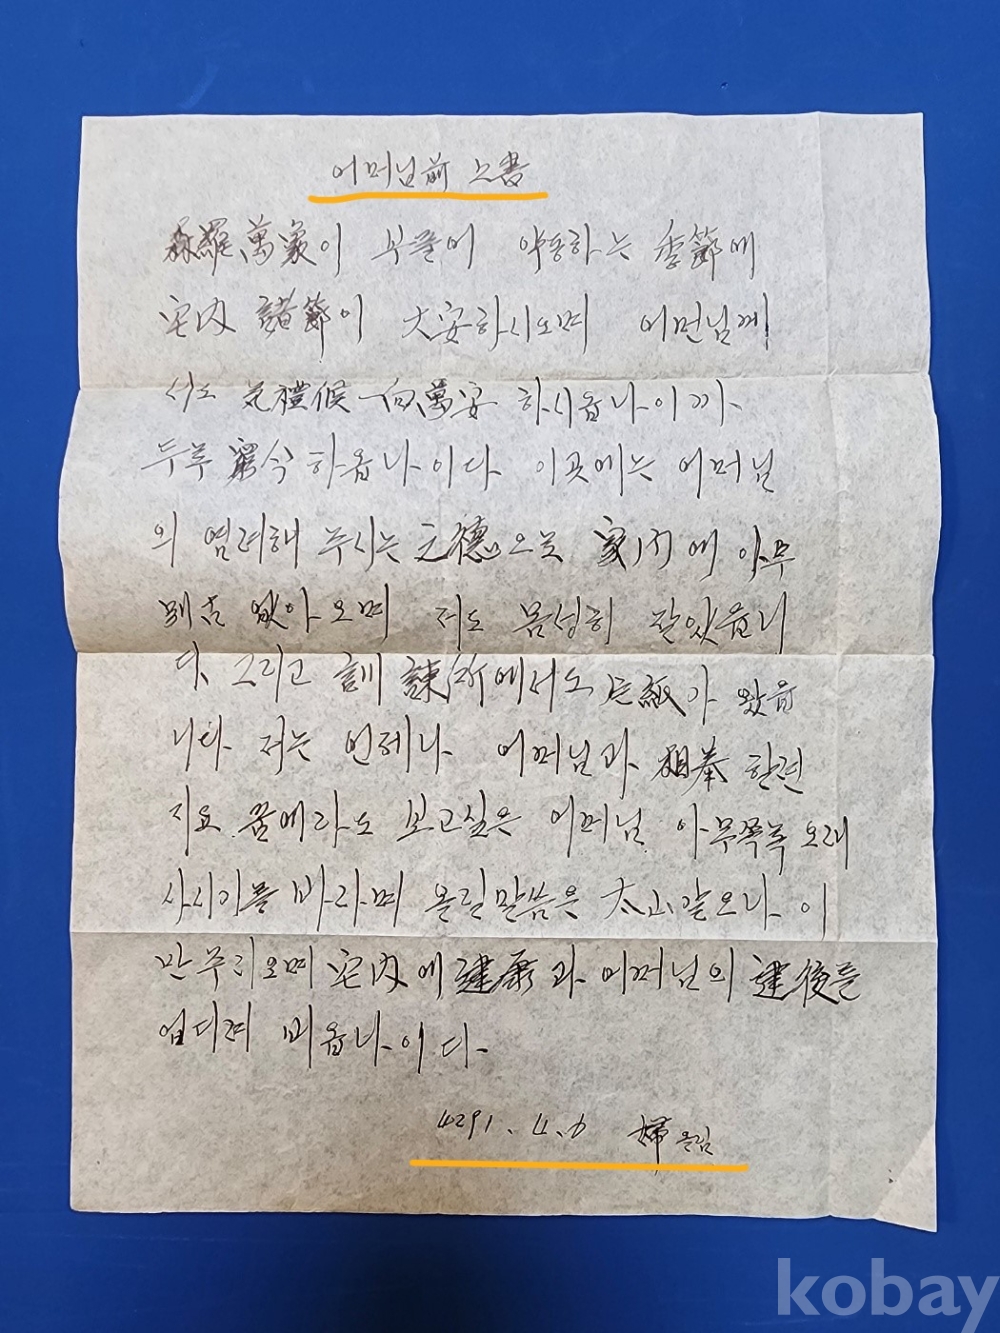 어머님前 上書
森羅萬象이 부풀어 약동하는 季節에
宅內 諸節이 大安하시오며 어먼님께
서도 氣禮候 一向萬安 하시옵나이까
두루 窮今 하옵나이다 이곳에는 어머님
의 염려해 주시는 元德으로 家內에 아무
別古 없아오며 저도 몸성히 잘있읍니
다 그리고 訓諫所에서도 片紙가 왔읍
니다 저는 언제나 어머님과 相奉 할런
지요 꿈에라도 보고싶은 어머님 아무쪼록 오래
사시기를 바라며 올릴말씀은 太山같오나 이
만 주리오며 宅內에 建康과 어머님의 建後를
업디려 비옵나이다.
4291. 4. 6 婦 올림
kobay